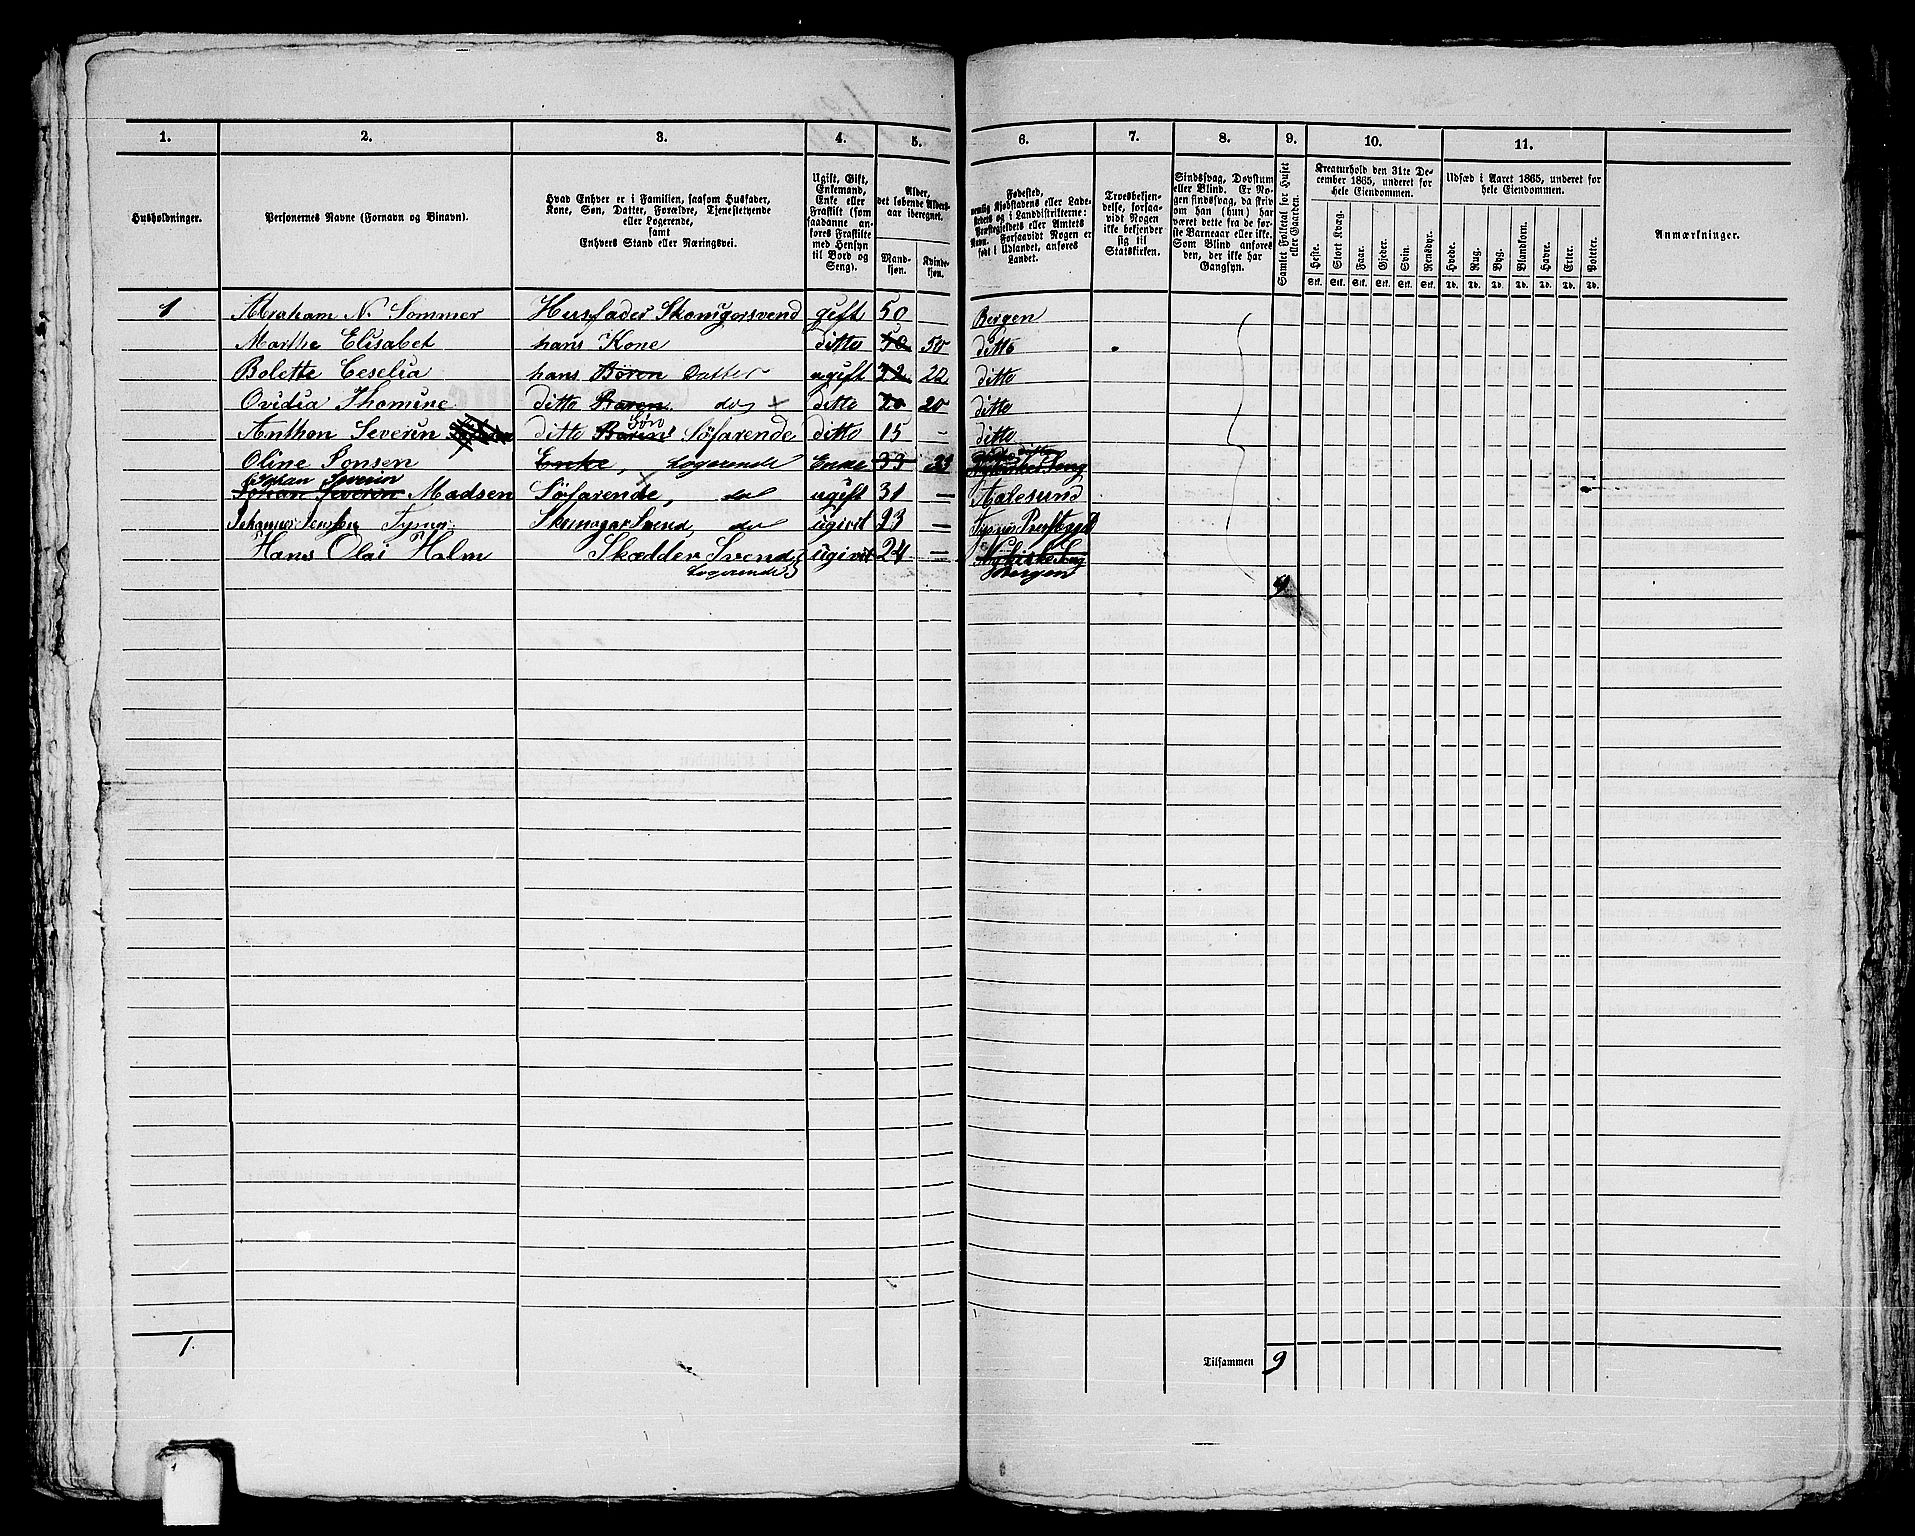 1. 2. 3. 4. 5. 6. 7. 8. 9. 10. 11.
Husholdninger.
Personernes Navne (Fornavn og Binavn).
Hvad Enhver er i Familien, saasom Husfader,
Kone, Søn, Datter, Forældre, Tjenestetyende
eller Logerende,
samt
Enhvers Stand eller Næringsvei.
Ugift, Gift,
Enkemand,
Enke eller
Fraskilt (som
saadanne anføres
Fraskilte
med Hensyn
til Bord og
Seng).
Alder,
det løbende Aldersaar
iberegnet.
Mandkjøn.
Kvindekjøn.
Fødested,
nemlig Kjøbstadens eller Ladestedets
og i Landdistrikterne:
Præstegjeldets eller Amtets
Navn. Forsaavidt Nogen er
født i Udlandet, anføres
Landet.
Troesbekjendelse,
forsaavidt
Nogen
ikke bekjender
sig til
Statskirken.
Sindssvag, Døvstum
eller Blind. Er Nogen
sindssvag, da skriv
om han (hun) har
været dette fra de første
Barneaar eller ikke.
Som Blind anføres
den, der ikke har
Gangsyn.
Samlet Folketal for Huset
eller Gaarden.
Kreaturhold den 31te December
1865, underet for
hele Eiendommen.
Heste. Stort Kvæg. Faar. Gjeder. Svin. Rensdyr.
Stk. Stk. Stk. Stk. Stk. Stk.
Udsæd i Aaret 1865, underet for
hele Eiendommen.
Hvede. Rug. Byg. Blandkorn. Havre. Erter. Poteter.
Td. Td. Td. Td. Td. Td. Td.
Anmærkninger.
1 Abraham N. Sommer Husfader Skomagersvend gift 50 Bergen
Marthe Elisabet hans Kone ditto 50 50 ditto
Bolette Ceselia hans Baren Datter ugift 22 22 ditto
Ovidia Thomine ditto Baren do ditto 20 20 ditto
Anthon Severin ditto Baren Søn Søfarende ditto 15 – ditto
Oline Jonsen Enke, Logerende Enke 33 33 ditto
Johan Severin
Johan Severin Madsen Søfarende, do ugift 31 – Aalesund
Johannes Jensen Skomagar Svend, do ugivt 23 –
Hans Olai Holm Skædder Svend ugivt 24 –
Logerende Bergen
9
1. Tilsammen 9